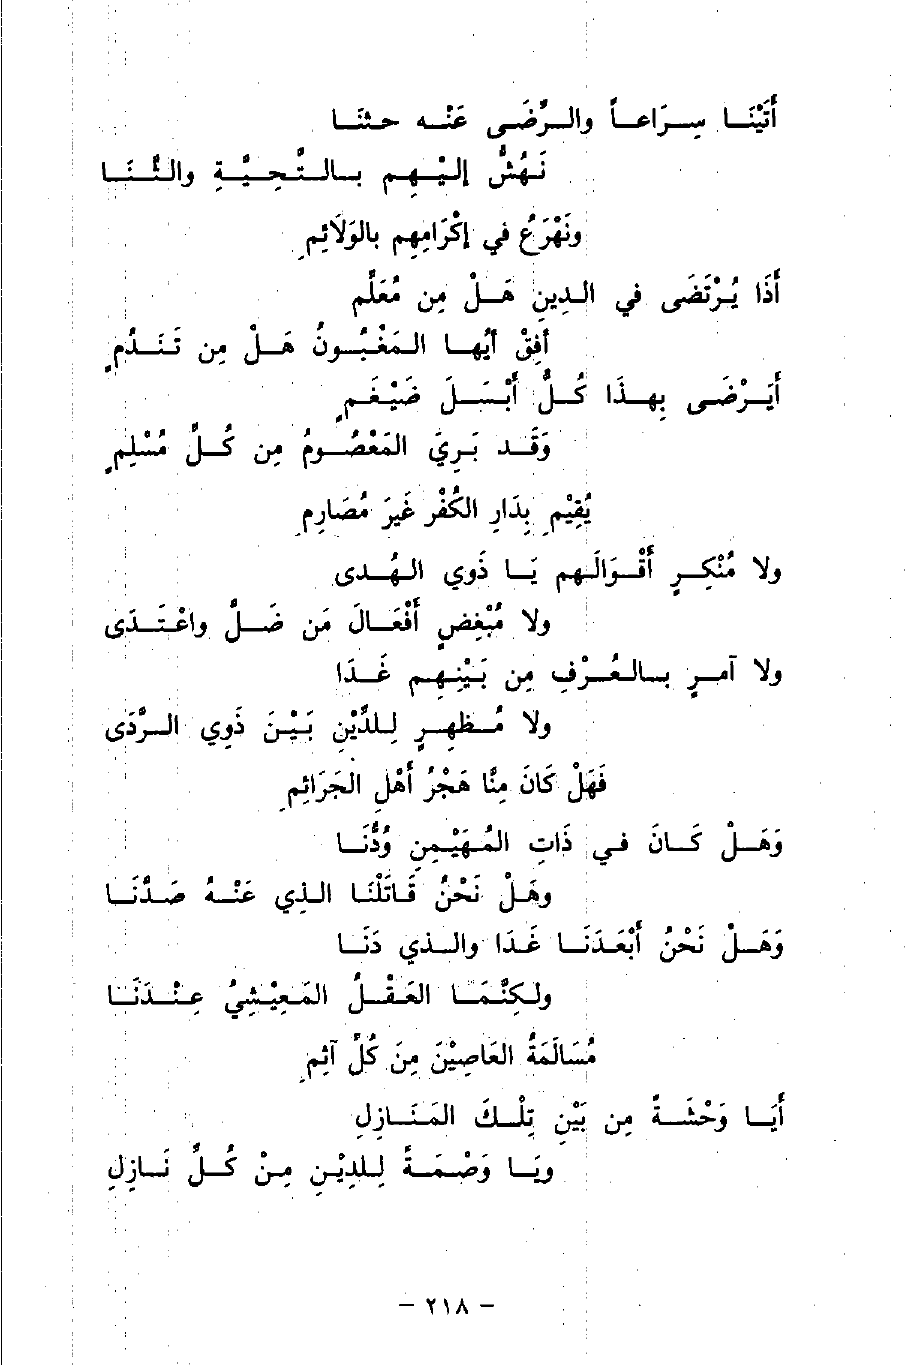 أَتَيْنَا سِرَاعاً والرِّضَى عَنْه حثنَا
نَهُشُّ إليْهِم بالتَّحِيَّةِ والثَّنَا
ونَهْرَعُ في إكْرَامِهِم بالوَلَائِمِ
أَذَا يُرْتَضَى في الدِينِ هَلْ مِن مُعَلِّم
أفِقْ أيُّها المَغْبُونُ هَلْ مِن تَنَدُّمٍ
أَيَرْضَى بِهذَا كُلُّ أَبْسَلَ ضَيْغَمٍ
وَقَد بَرِيَ المَعْصُومُ مِن كُلِّ مُسْلِمٍ
يُقِيْمِ بِدَارِ الكُفْر غَيرَ مُصَارِمِ
ولا مُنْكِرٍ أَقْوَالَهم يَا ذَوي الهُدى
ولا مُبْغِضٍ أَفْعَالَ مَن ضَلَّ واعْتَدَى
ولا آمرٍ بالعُرْفِ مِن بَيْنِهِم غَدَا
ولا مُظهِرٍ لِلدِّيْنِ بَيْنَ ذَوِي الرَّدَى
فَهَلْ كَانَ مِنَّا هَجْرُ أَهْلِ الجَرَائِمِ
وَهَلْ كَانَ في ذَاتِ المُهَيْمِنِ وُدُّنَا
وهَلْ نَحْنُ قَاتَلْنَا الذِي عَنْهُ صَدَّنَا
وَهَلْ نَحْنُ أَبْعَدَنَا غَدَا والذي دَنَا
ولكِنَّمَا العَقْلُ المَعِيْشِيُ عِنْدَنَا
مُسَالَمَةُ العَاصِيْنَ مِنَ كُلِّ آثِمِ
أَيَا وَحْشَةً مِن بَيْنِ تِلْكَ المَنَازِلِ
ويَا وَصْمَةً لِلدِيْنِ مِنْ كُلِّ نَازِلِ
- ٢١٨ -